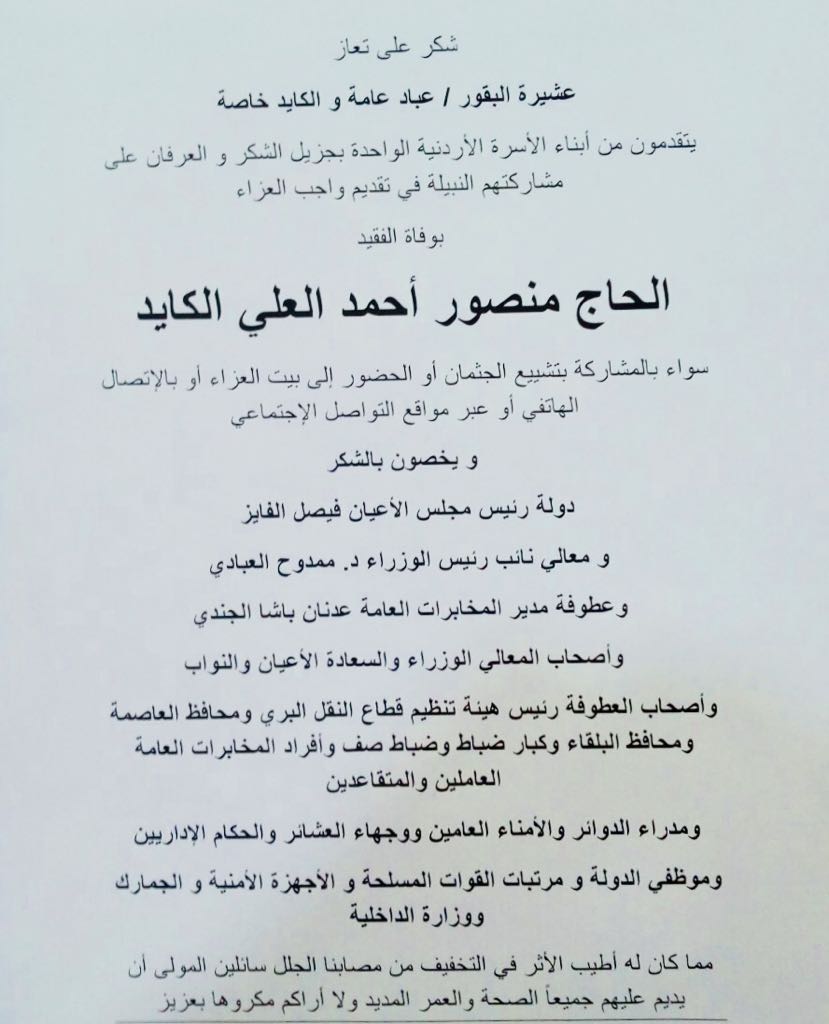 شكر على تعاز
عشيرة البقور / عباد عامة و الكايد خاصة
يتقدمون من أبناء الأسرة الأردنية الواحدة بجزيل الشكر و العرفان على
مشاركتهم النبيلة في تقديم واجب العزاء
بوفاة الفقيد
الحاج منصور أحمد العلي الكايد
سواء بالمشاركة بتشييع الجثمان أو الحضور إلى بيت العزاء أو بالإتصال
الهاتفي أو عبر مواقع التواصل الإجتماعي
و يخصون بالشكر
دولة رئيس مجلس الأعيان فيصل الفايز
و معالي نائب رئيس الوزراء د. ممدوح العبادي
وعطوفة مدير المخابرات العامة عدنان باشا الجندي
وأصحاب المعالي الوزراء والسعادة الأعيان والنواب
وأصحاب العطوفة رئيس هيئة تنظيم قطاع النقل البري ومحافظ العاصمة
ومحافظ البلقاء وكبار ضباط وضباط صف وأفراد المخابرات العامة
العاملين والمتقاعدين
ومدراء الدوائر والأمناء العامين ووجهاء العشائر والحكام الإداريين
وموظفي الدولة و مرتبات القوات المسلحة و الأجهزة الأمنية و الجمارك
ووزارة الداخلية
مما كان له أطيب الأثر في التخفيف من مصابنا الجلل سائلين المولى أن
يديم عليهم جميعاً الصحة والعمر المديد ولا أراكم مكروها بعزيز